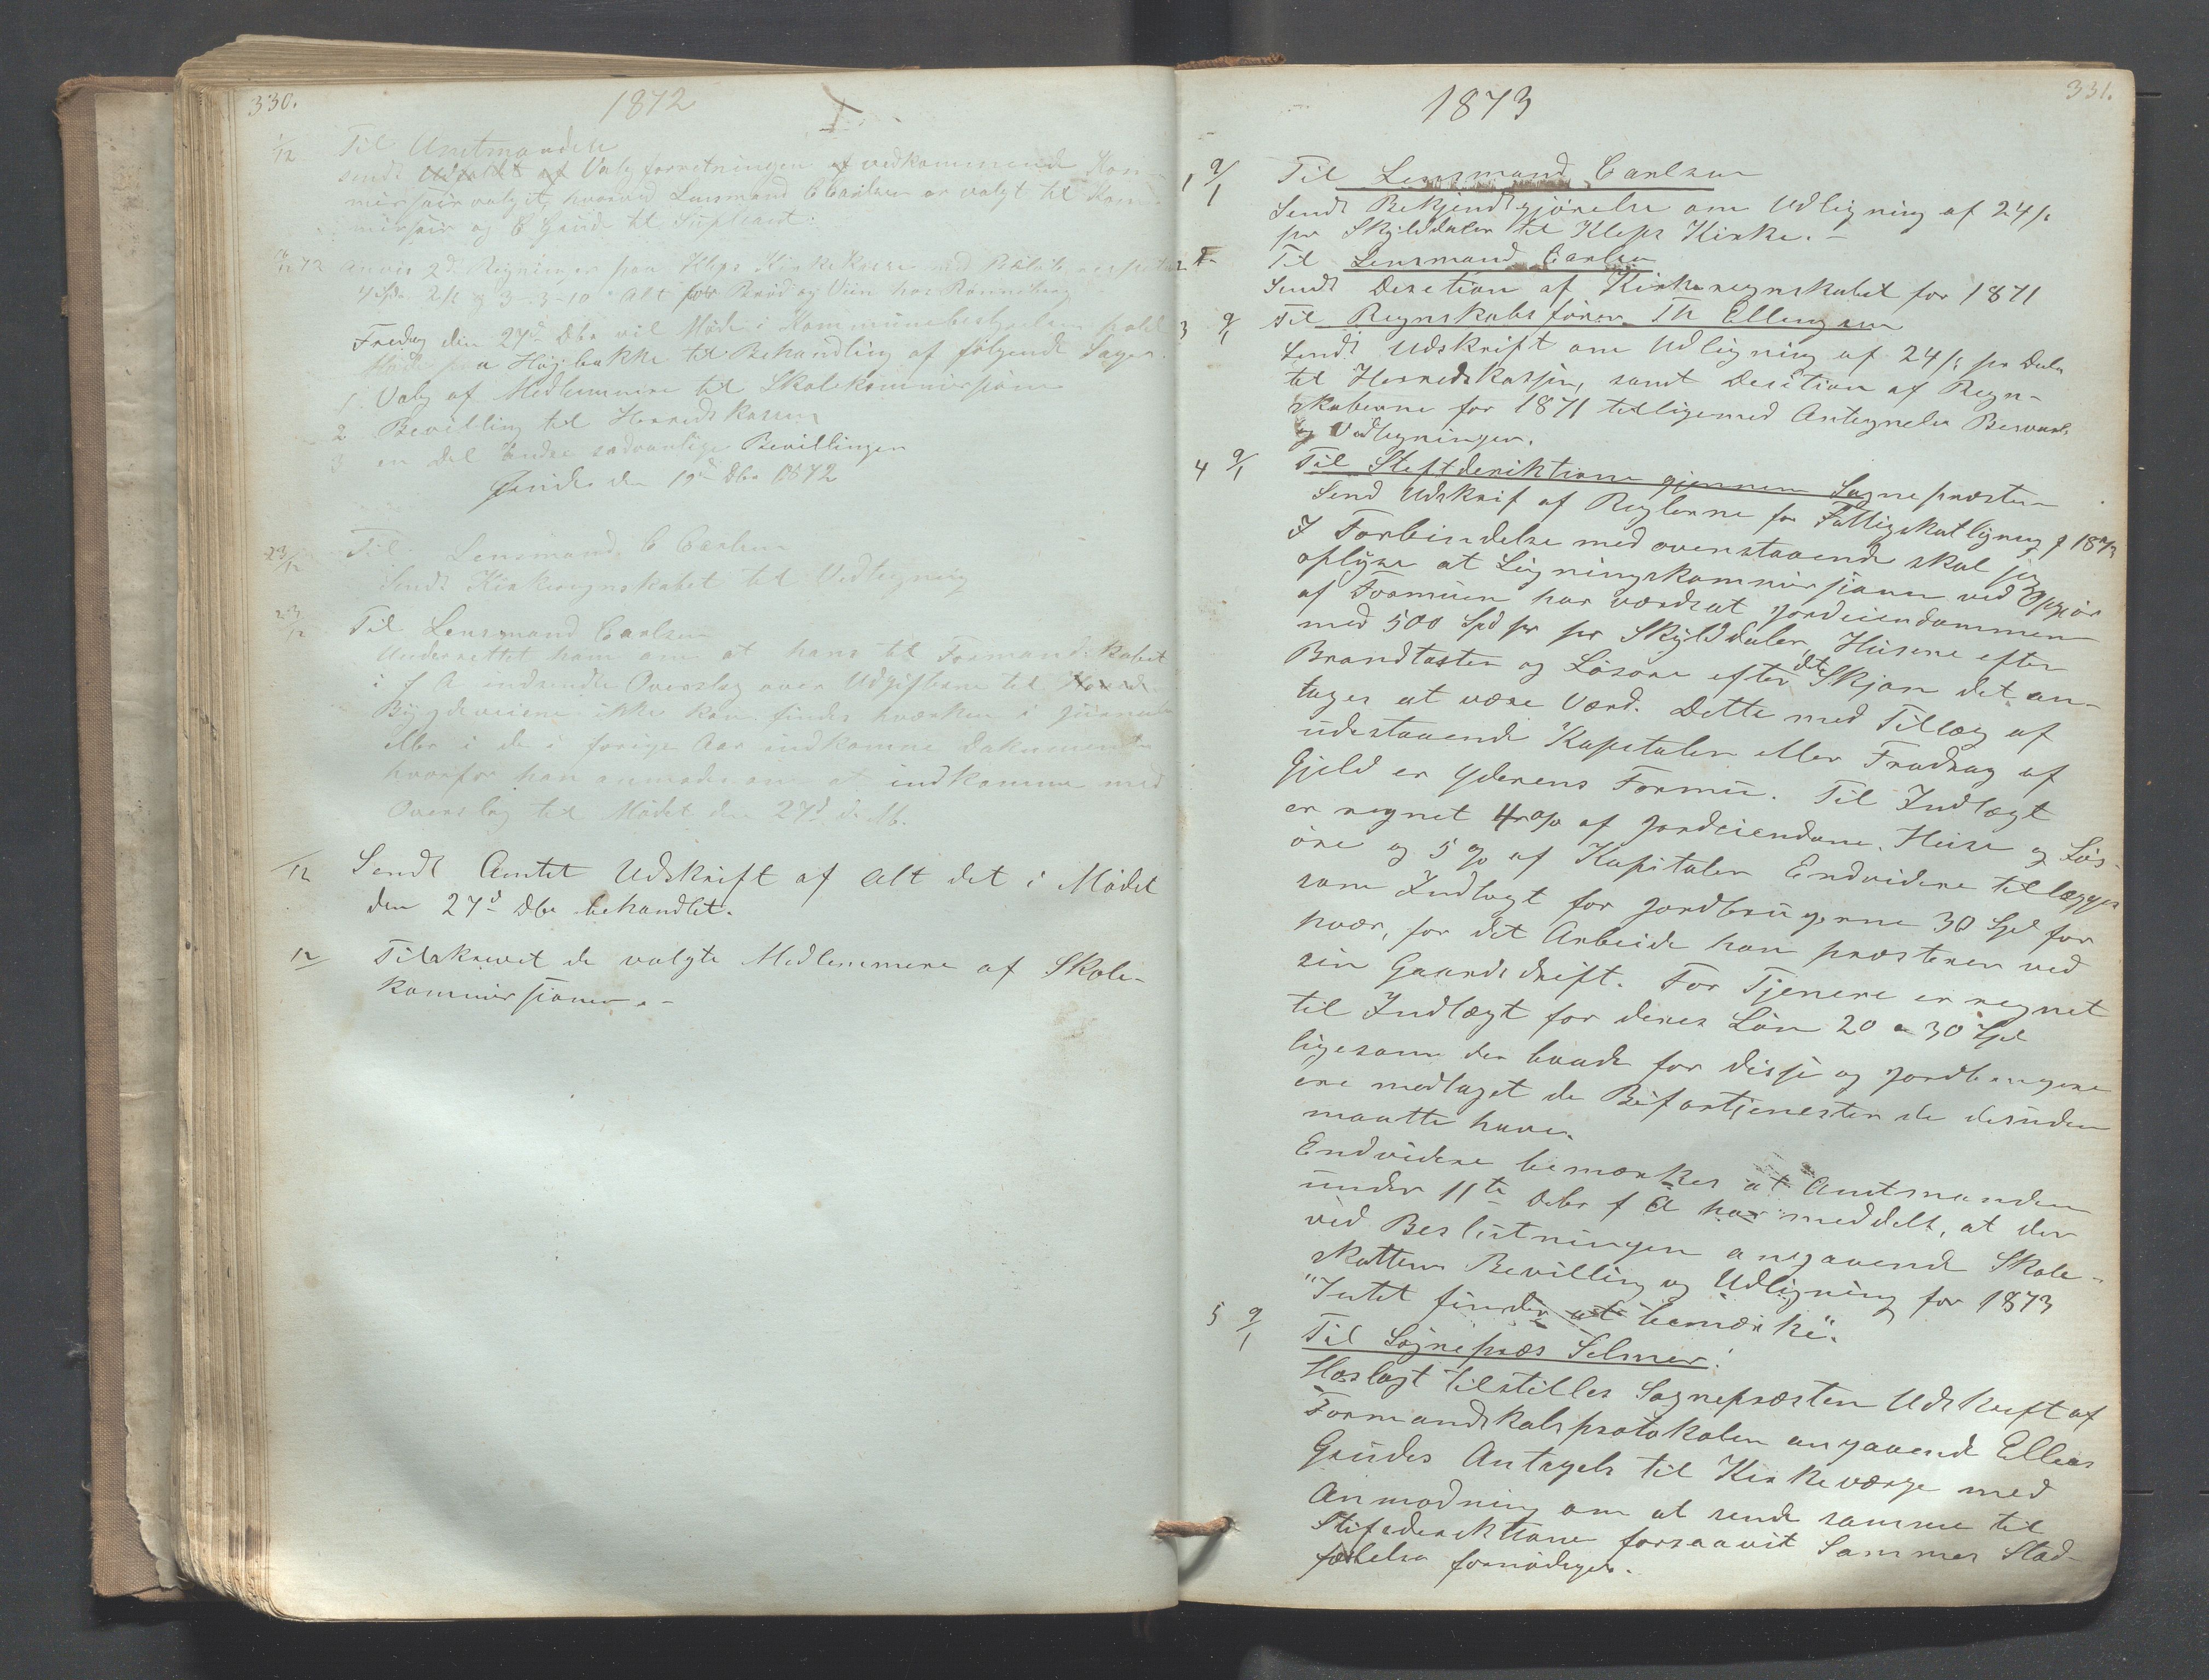 330.
1872
/12 Til Amtmanden
sendt Udskrift af Valgforretningen af vedkommende Kom-
missairvalget, hvorved Lensmand C Carlsen er valgt til Kom-
missair og E Grude til Supleant.
anvis 2de Regninger paa Kleps Kirkekasse med Beløb
4 Spd. 2 / & 3-3-10 Alt for Brød og Viin hos Rønneberg
Fredag den 27de Dbr vil Møde i Kommunebestyrelsen holdes
paa Højbakke til Behandling af følgende Sager.
1 Valg af Medlemmere til Skolekommissionen
2 Bevilling til Herredskassen
3 en Del andre sædvanlige Bevillinger
Grude den 19de Dbr 1872
23/12 Til Lensmand C Carlsen
Sendt Kirkeregnskabet til Vedtegning
23/12 Til Lensmand Carlsen
Underrettet ham om at hans til Formandskabet
i f A indsendte Overslag over Udgifterne til
Bygdeveiene ikke kan findes hværken i Journalen
eller i de i forige Aar indkomne Dokumenter
hvorfor han anmodes om at indkomme med
Overslag til Mødet den 27de ds M.
/12 Sendt Amtet Udskrift af Alt det i Mødet
den 27d Dbr behandlet.
12/ Tilskrevet de valgte Medlemmere af Skole-
kommissionen.-
331.
1873
1 9/1 Til Lensmand Carlsen
Sendt Bekjendtgjørelse om Udligning af 24 /
pr Skylddaler til Kleps Kirke.-
2 Til Lensmand Carlsen
Sendt Desetion af Kirkeregnskabet for 1871
3 9/1 Til Regnskabsfører Th Ellingsen
Sendt Udskrift om Udligning af 24 / pr Daler
til Herredskassen, samt Desition af Regn-
skaberne for 1871 tilligemed Antegnelser Besvarelse
og Vedtegninger.
4 9/1 Til Stiftderiktionen gjennem Sognepræsten
Send Udskrif af Reglerne for Fattigskatligning f 1873
I Forbindelse med ovenstaaende skal jeg
oplyse at Ligningskommissionen ved Opgjør
af Formuen har værdsat Jordeiendommen
med 500 Spd pr pr Skylddaler, Husene efter
Brandtasten og Løsøre efter dets Skjøn det an-
tages at være Værd. Dette med Tillæg af
udestaaende Kapitaler eller Fradrag af
Gjeld er Yderens Formu. Til Indtægt
er regnet 4 % af Jordeiendom. Huse og Løs-
øre og 5 % af Kapitaler Endvidere tillægges
som Indtagt for Jordbrugerne 30 Spd for
hvær, for det Arbeide han præsterer ved
sin Gaardsdrift. For Tjenere er regnet
til Indtægt for deres Løn 20 a 30 Spd
ligesom der baade for disse og Jordbrugere
ere medtaget de Bifortjenester de desuden
maatte have.
Endvidere bemærkes at Amtmanden
under 11te Debr f A har meddelt, at der
ved Beslutningen angaaende Skole-
skattens Bevilling og Udligning for 1873
"Intet findes at bemærke".
5 9/1 Til Sognepræs Selmer.
Hoslagt tilstilles Sognepræsten Udskrift af
Formandskabsprotokolen angaaende Ellias
Grudes Antagels til Kirkeværge med
Anmodning om at sende samme til
Stifsderektione forsaavit Sammes Stad-
fæstelse fornødiges.